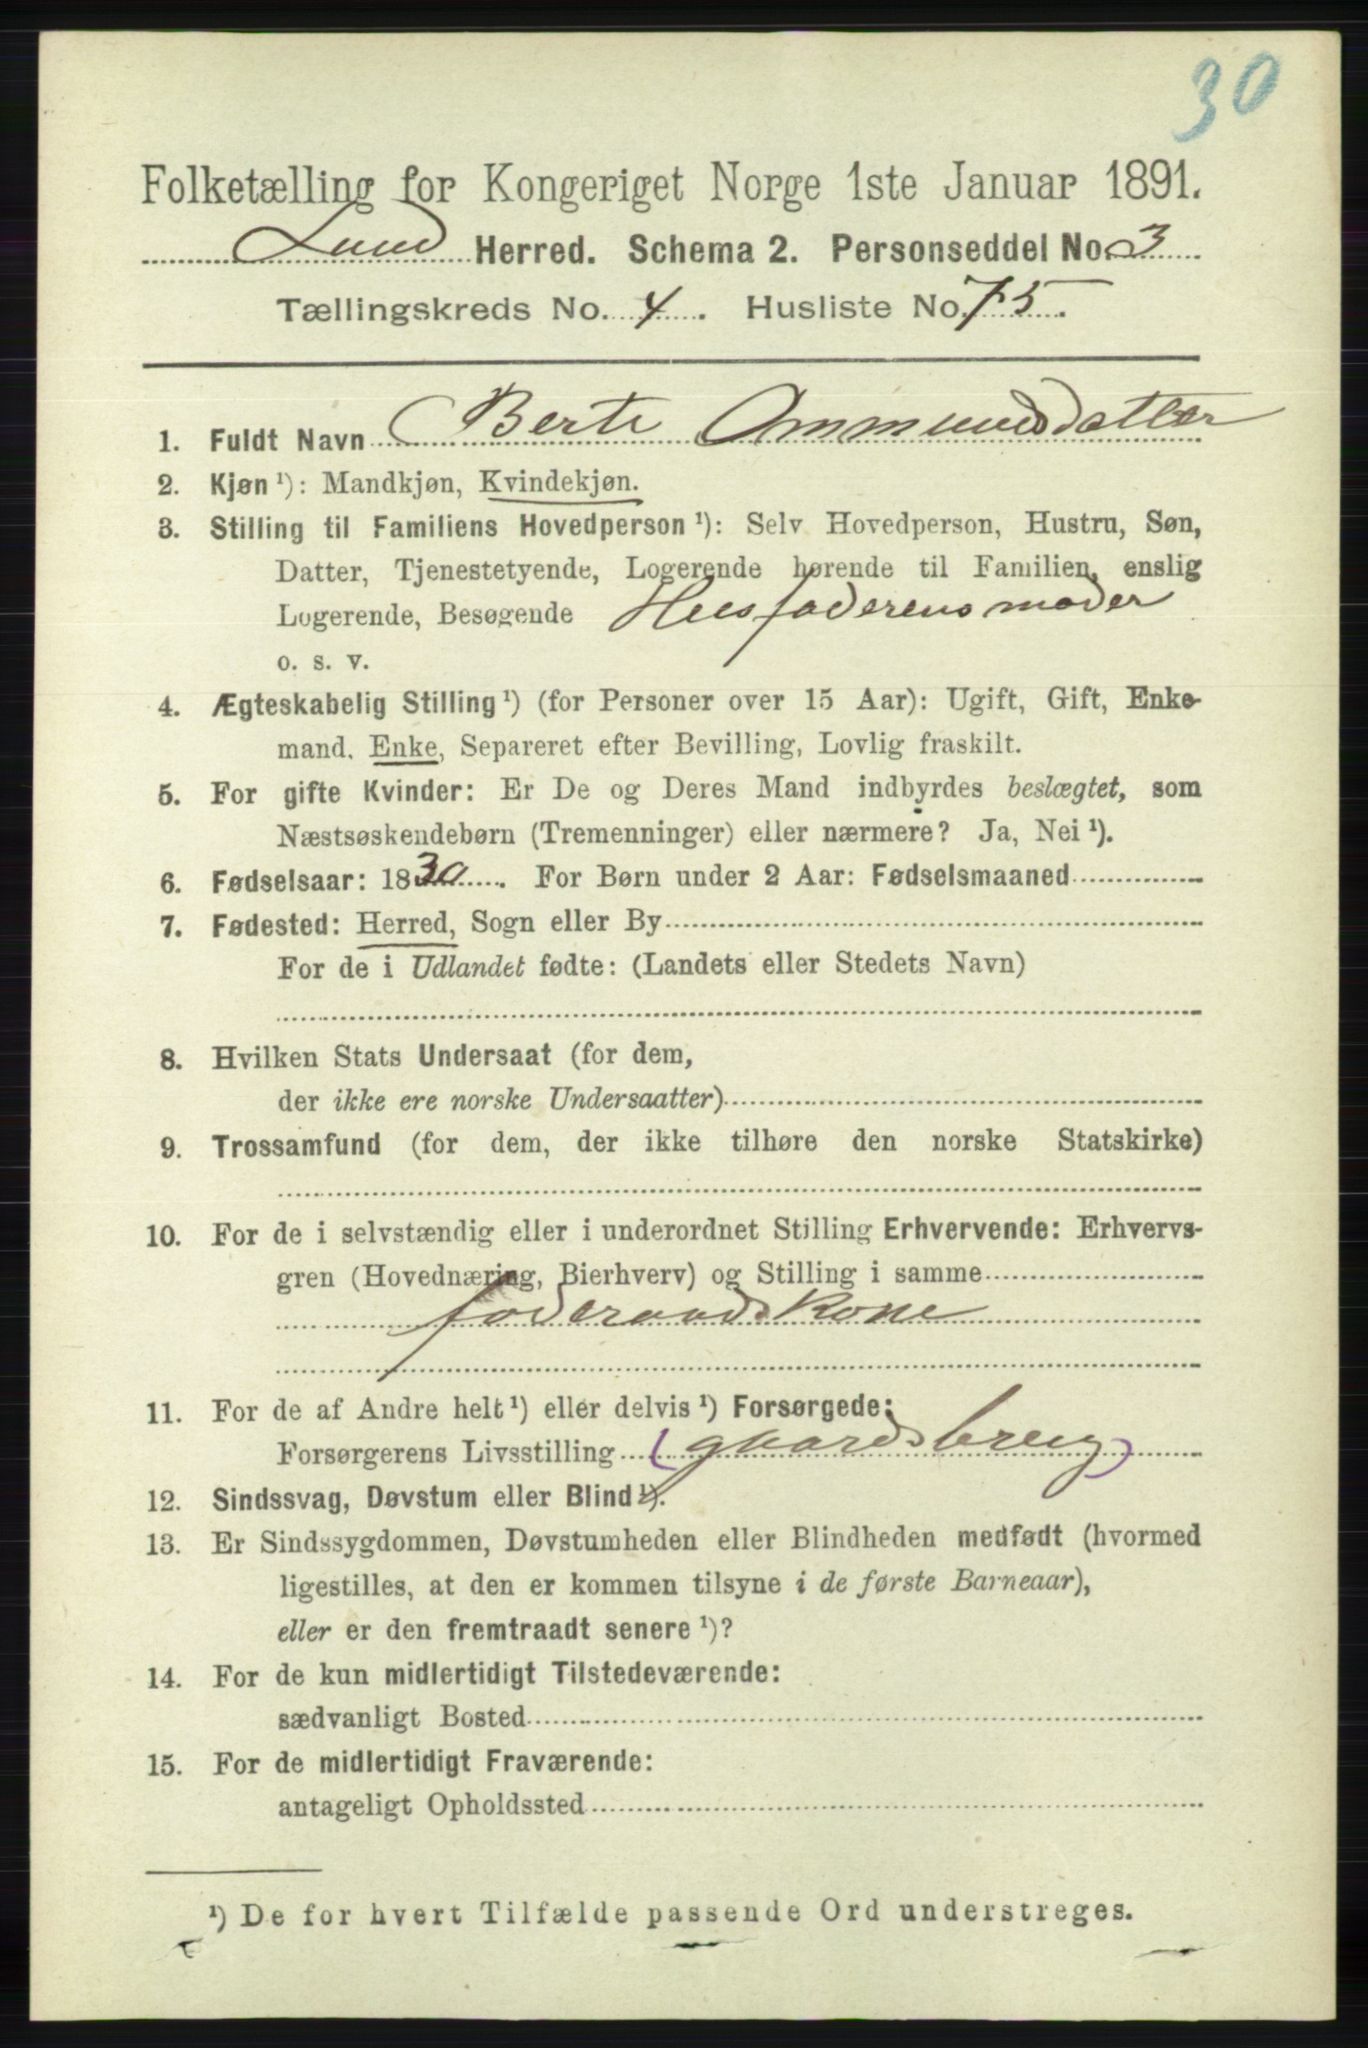 30
Folketælling for Kongeriget Norge 1ste Januar 1891.
Lund Herred. Schema 2. Personseddel No. 3
Tællingskreds No. 4. Husliste No. 75.
1. Fuldt Navn Berte Ommundsdatter
2. Kjøn ¹): Mandkjøn, Kvindekjøn.
3. Stilling til Familiens Hovedperson ¹): Selv Hovedperson, Hustru, Søn,
Datter, Tjenestetyende, Logerende hørende til Familien, enslig
Logerende, Besøgende Husfaderens moder
o. s. v.
4. Ægteskabelig Stilling ¹) (for Personer over 15 Aar): Ugift, Gift, Enke-
mand, Enke, Separeret efter Bevilling, Lovlig fraskilt.
5. For gifte Kvinder: Er De og Deres Mand indbyrdes beslægtet, som
Næstsøskendebørn (Tremenninger) eller nærmere? Ja, Nei ¹).
6. Fødselsaar: 1830. For Børn under 2 Aar: Fødselsmaaned
7. Fødested: Herred, Sogn eller By
For de i Udlandet fødte: (Landets eller Stedets Navn)
8. Hvilken Stats Undersaat (for dem,
der ikke ere norske Undersaatter)
9. Trossamfund (for dem, der ikke tilhøre den norske Statskirke)
10. For de i selvstændig eller i underordnet Stilling Erhvervende: Erhvervs-
gren (Hovednæring, Bierhverv) og Stilling i samme
foderaadskone
11. For de af Andre helt ¹) eller delvis ¹) Forsørgede:
Forsørgerens Livsstilling (gaardsbrug)
12. Sindssvag, Døvstum eller Blind ¹).
13. Er Sindssygdommen, Døvstumheden eller Blindheden medfødt (hvormed
ligestilles, at den er kommen tilsyne i de første Barneaar),
eller er den fremtraadt senere ¹)?
14. For de kun midlertidigt Tilstedeværende:
sædvanligt Bosted
15. For de midlertidigt Fraværende:
antageligt Opholdssted
¹) De for hvert Tilfælde passende Ord understreges.